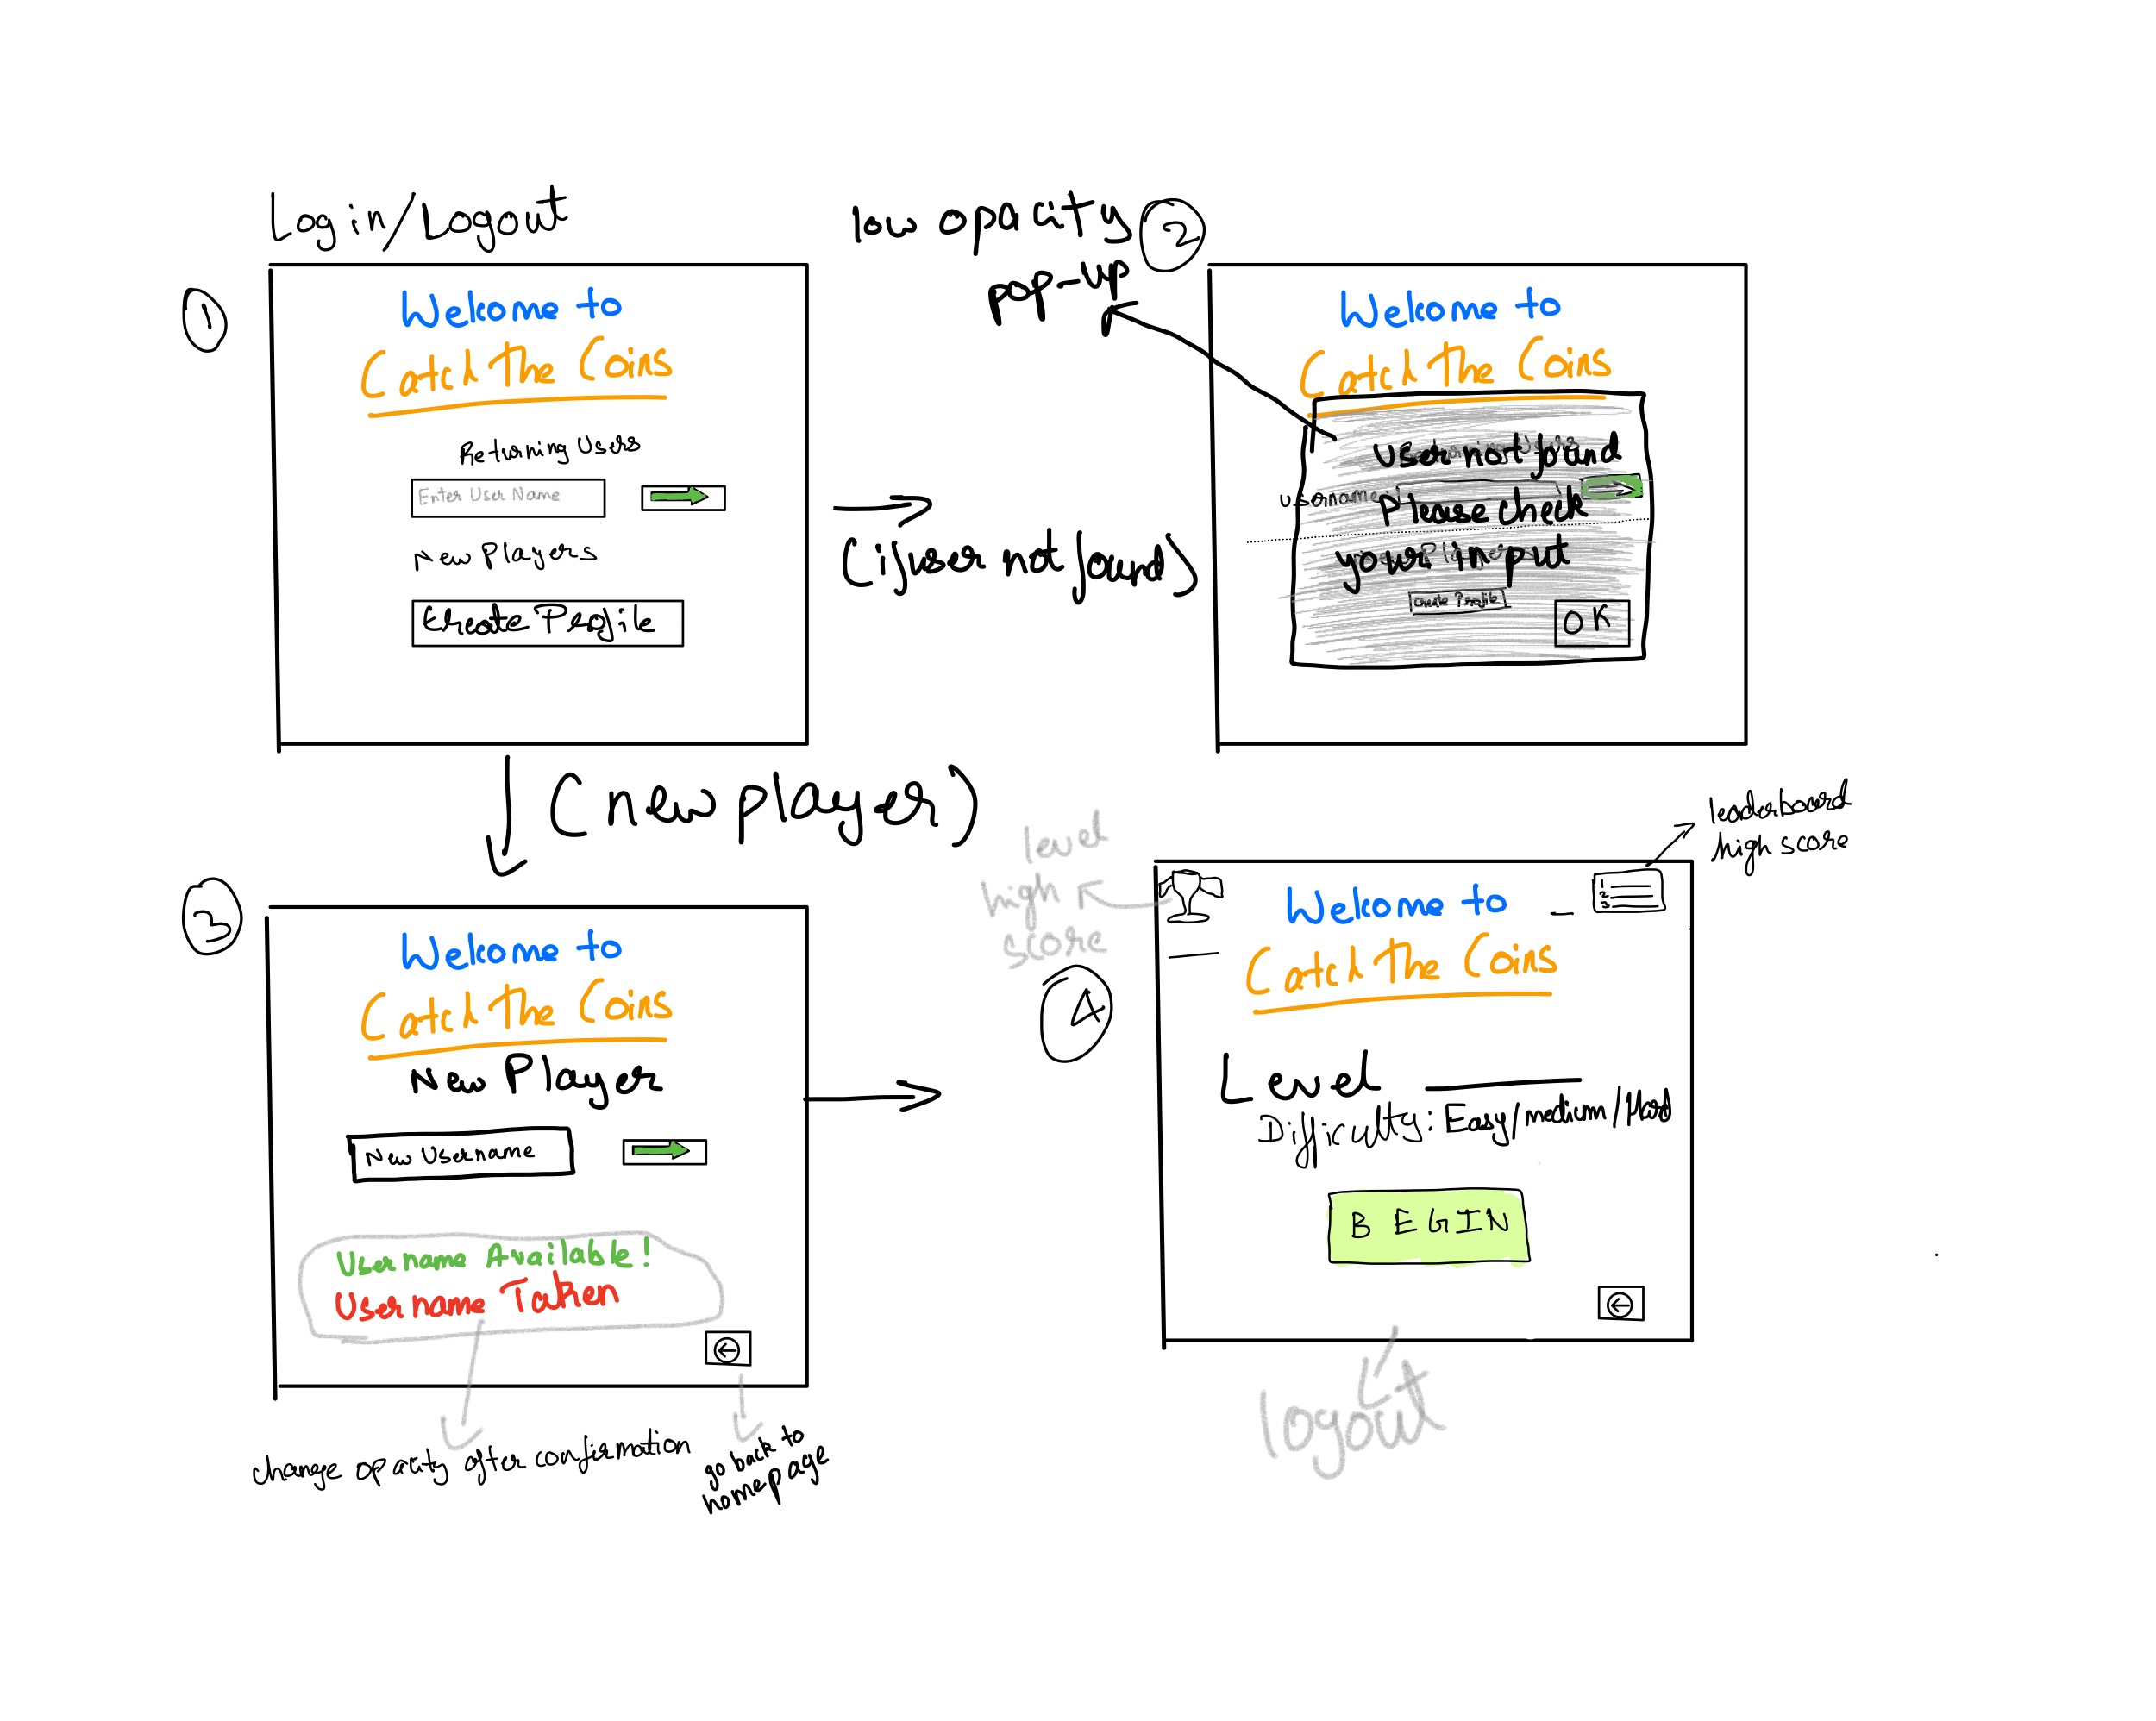 Login/Logout
1
Welcome to
Catch The Coins
Returning Users
Enter User Name
New Players
Create Profile
(if user not found)
low opacity
pop-up
2
Welcome to
Catch The Coins
User not found
username:
Please check
your input
Create Profile
OK
(new player)
3
Welcome to
Catch The Coins
New Player
New Username
Username Available!
Username Taken
change opacity after confirmation
go back to
homepage
level
high
score
4
leaderboard
high score
1
2
3
Welcome to
Catch The Coins
Level
Difficulty: Easy/medium/Hard
BEGIN
logout